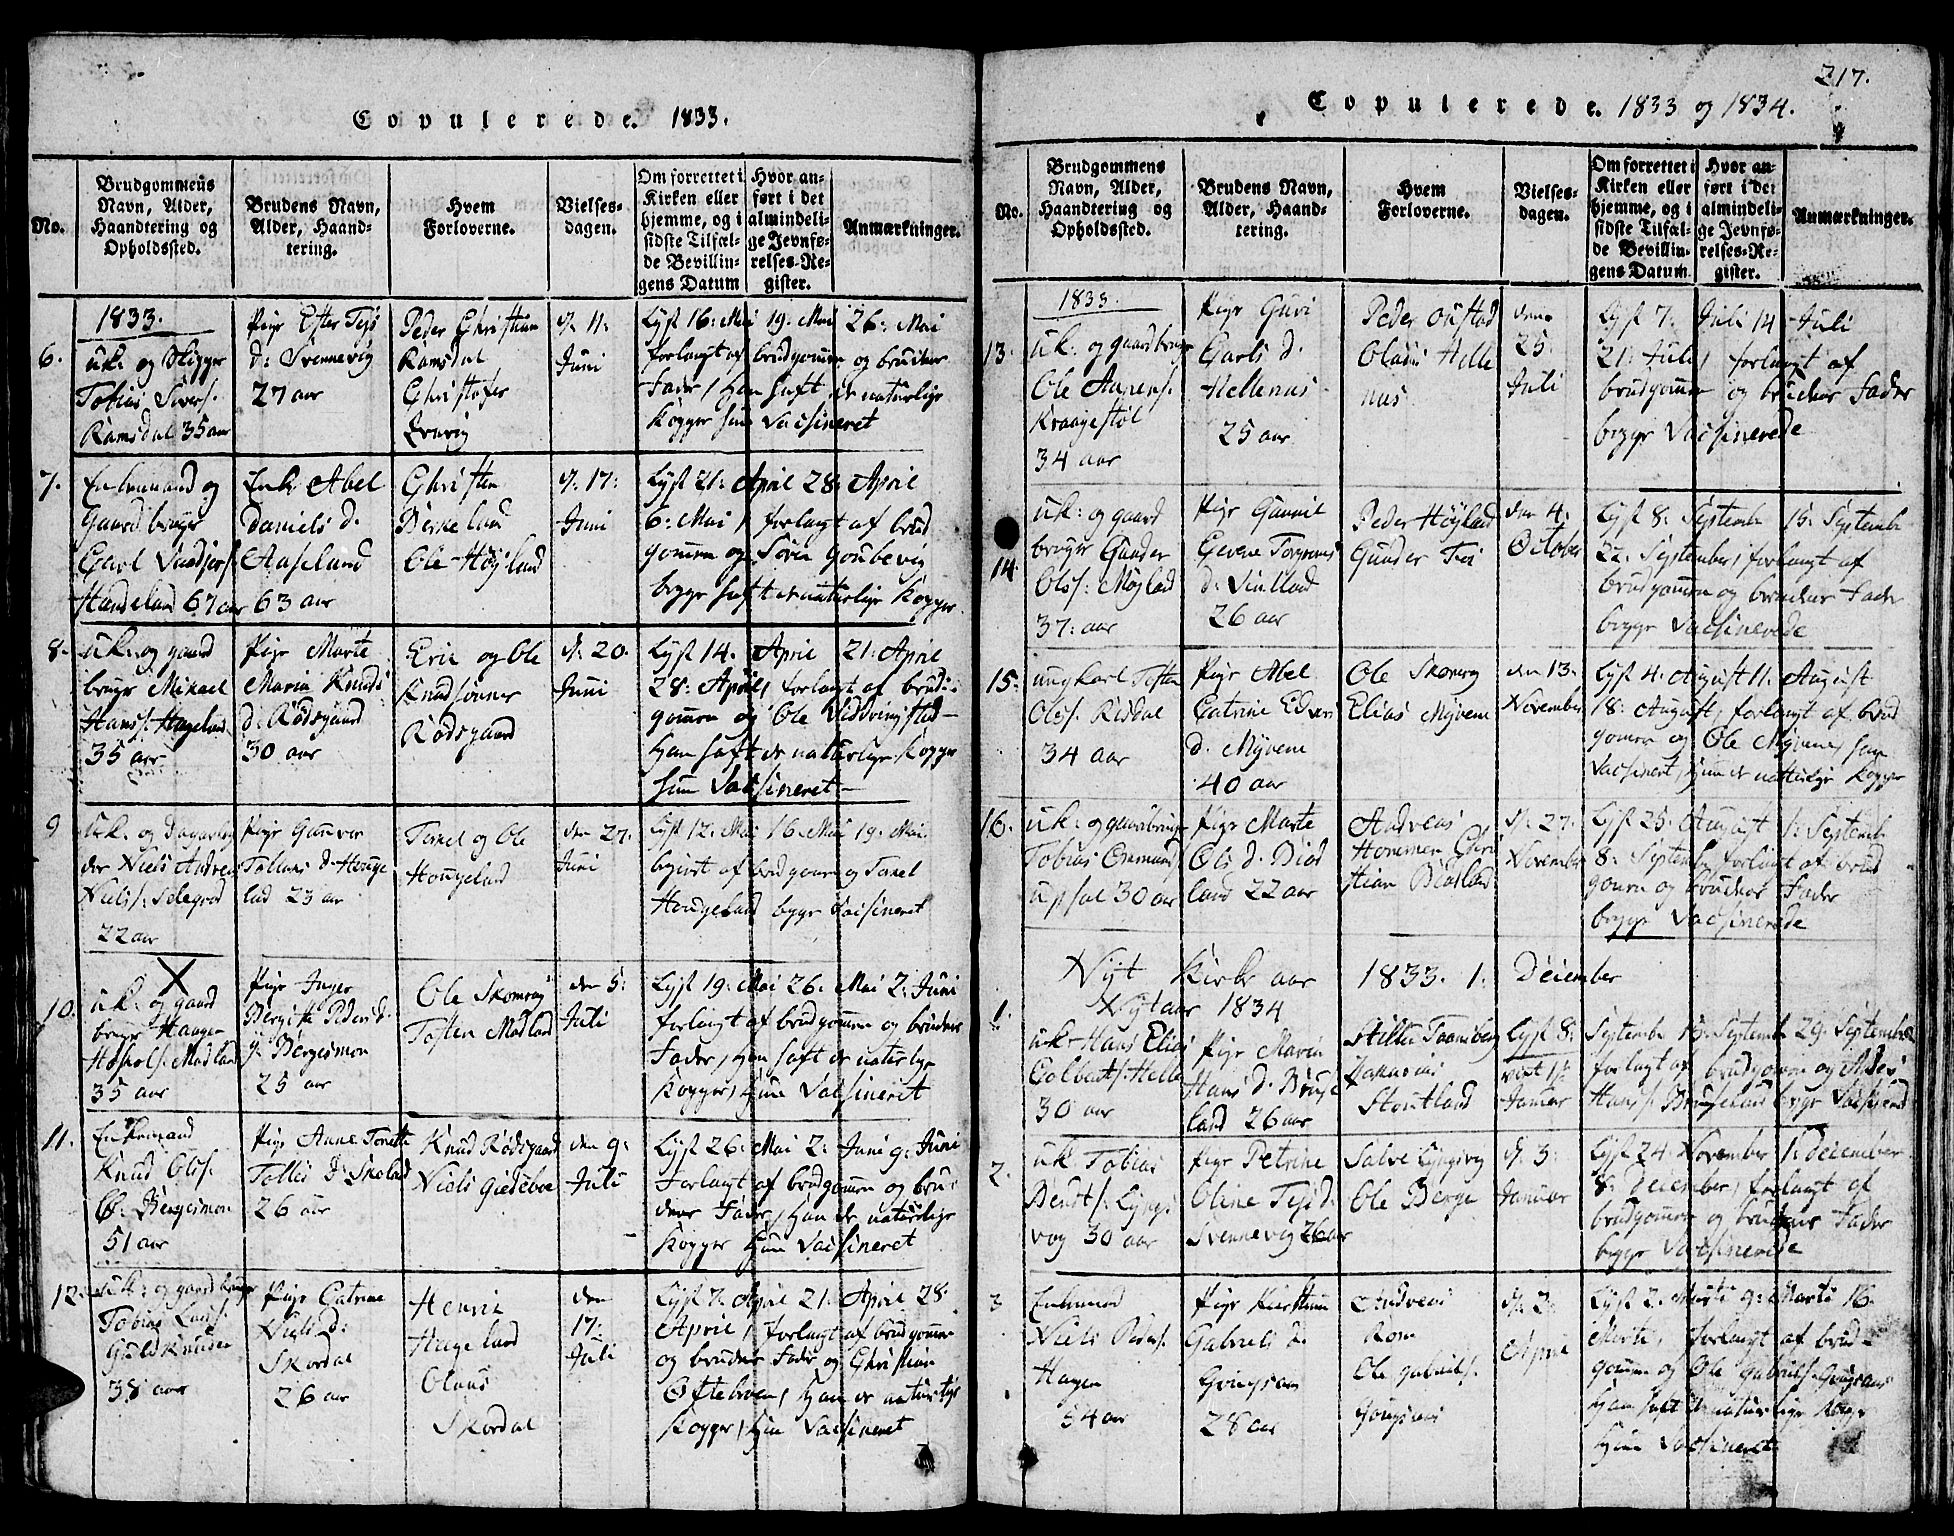 Copulerede. 1833.
No.
Brudgommens
Navn, Alder,
Haandtering og
Opholdssted.
Brudens Navn,
Alder, Haand-
tering.
Hvem
Forloverne.
Vielses-
dagen.
Om forrettet i
Kirken eller
hjemme, og i
sidste Tilfæl-
de Bevillin-
gens Datum
Hvor an-
ført i det
almindeli-
ge Jevnfø-
relses-Re-
gister.
Anmærkninger.
1833.
6.
uk: og
Tobias Sivers.
Ramsdal 35 aar
Pige Ester Tejs
d: Svennevig
27 aar
Peder Christian
Ramsdal
Christofer
d. 11:
Juni
Lyst 16: Mai 19. Mai 26: Mai
forlangt af brudgomen og brudens
Fader, Han haft de naturlige
Kopper hun Vacsineret
7.
Enkemand og
Gaardbruger
Carl
Handeland 67 aar
Enke Abel
Daniels d.
Aaseland
63 aar
Christen
Berkeland
Ole Høyland
d. 17:
Juni
Lyst 21: April 28: April
6: Mai, forlangt af brud
gomen og Søren Goubevig
begge haft de naturlige Kopper.
8.
uk: og gaard
bruger Mikael
Hans/. Hageland
35 aar
Pige Marte
Maria Knuds
d: Rødsgaard
30 aar
Eric og Ole
Knudsønner
Rødsgaard
d. 20
Juni
Lyst 14. April 21: April
28: April, forlangt af brud
gomen og Ole
Han haft de naturlige Kopper
hun Vacsineret
9
uk: og
der Niels Andreas
Niels/: Selegrod
22 aar
Pige Gunver
Tollens d. Houge
lad 23 aar
Torkel og Ole
Hougeland
den 27.
Juni
Lyst 12: Mai 16. Mai 19: Mai.
begiert af brudgomen og Torkel
Hougeland begge Vacsineret
10.
uk: og gaard
bruger Haagen
Madland
35 aar
Pige Inger
Bergitte Peders d.
Bergesmon
25 aar
Ole Skomrag
Tosten Madland
den 5:
Juli
Lyst 19: Mai 26: Mai 2: Juni
forlangt af brudgomen og brudens
Fader, Han haft de naturlige
Kopper, Hun Vacsineret
11.
Enkemand
Knud Ols/.
Ø. Bergesmon
51 aar
Pige Anne Tonette
Tollis d: Skolad
26 aar
Knud Rødsgaard
Niels Giedeboe
den 9:
Juli
Lyst 26: Mai 2: Juni 9: Juni
Forlangt af brudgomen og bru-
dens Fader, Han de naturlige
Kopper Hun Vacsineret
12.
uk: og gaardbruger
Tobias Lars/.
Guldknuden
38 aar
Pige Catrine
Niels d:
Skordal
26 aar
Henric
Hageland
Olaus
Skordal
den
17:
Juli
Lyst 7: April 21: April 28:
April, forlangt af brudgomen
og brudens Fader og Christian
Øftebroen, Han de naturlige
Kopper, Hun Vacsineret
217.
Copulerede. 1833 og 1834.
No.
Brudgommens
Navn, Alder,
Haandtering og
Opholdssted.
Brudens Navn,
Alder, Haand-
tering.
Hvem
Forloverne.
Vielses-
dagen.
Om forrettet i
Kirken eller
hjemme, og i
sidste Tilfæl-
de Bevillin-
gens Datum
Hvor an-
ført i det
almindeli-
ge Jevnfø-
relses-Re-
gister.
Anmærkninger.
1833.
13.
uk: og gaardbruger
Ole Aanens/.
Kraagestøl
34 aar
Pige Guri
Carls d.
Hellenus
25 aar
Peder Oustad
Olaus Helle
nus
denn
25.
Juli
Lyst 7: Juli 14 Juli
21: Juli, forlangt af
brudgomen og brudens Fader
begge Vacsinerede
14
uk: og gaard
bruger Gunder
Ols/. Møglad
37: aar
Pige Gunnil
Gevene Torgrims
d:
26 aar
Peder Høyland
Gunder
den 4:
October
Lyst 8: September 15. September
22. September, forlangt af
brudgomen og brudens Fader
begge Vacsinerede
15:
ungkarl Tosten
Ols/. Risdal
34 aar
Pige Abel
Catrine
d. Myvene
40 aar
Ole Skomrag
Elias Myvene
den 13:
November
Lyst 4: August 11. August
18: August, forlangt af brud
gomen og Ole Myvene, han
Vacsinert, Hun de naturlige Kopper
16.
uk: og gaardbruger
Tobias Ommunds/
upsal 30 aar
Pige Marte
Ols d. Biod
land 22 aar
Andreas
Hommen Chri
stian Biodland
d. 27.
November
Lyst 25: August 1: September
8: September forlangt af brud
gomen og brudens Fader
begge Vacsinerede
Nyt Kirke aar 1833. 1: Decemb​er
Nytaar 1834
1.
uk Hans Elias
Helle
30 aar
Pige Maria
Hans d. Bruse
land 26 aar
Stoutland
Lyst 8:
vort 1ste
Januar
September 15. September 29. September
forlangt af brudgomen og
Hans/. Bruseland begge Vacsinerd
2.
uk Tobias
Bendt/. Lyngs
vog 30 aar
Pige Petrine
Oline Tejs d.
Svennevig 26 aar
Salve Lyngsvog
Ole Berge
d. 3:
Januar
Lyst 24. November 1: December
8: December, forlangt af
brudgomen og brudens Fader
begge Vacsinerede
3
Enkemand
Niels Peders/.
Hagen
54 aar
Pige
Gabriels d.
28 aar
Andreas
Rom
Ole Gabriels/.
d. 2.
April
Lyst 2. Marts 9: Marts 16.
Marts, forlangt af brud-
gomen og Ole Gabriels/.
Han haft de naturlige Kopper
Hun Vacsineret